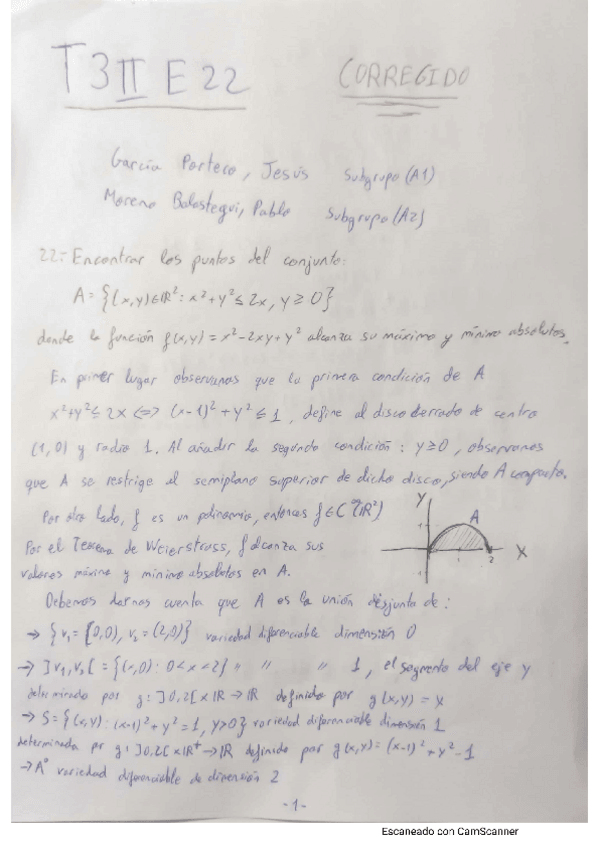 T3II E22
CORREGIDO
García Portero, Jesús Subgrupo (A1)
Moreno Balastegui, Pablo Subgrupo (A2)
22:- Encontrar los puntos del conjunto:
A = {(x,y)∈ℝ²: x²+y² ≤ 2x, y ≥ 0}
donde la función f(x,y) = x²-2xy+y² alcanza su máximo y mínimo absolutos.
En primer lugar observamos que la primera condición de A
x²+y² ≤ 2x <=> (x-1)²+y² ≤ 1, define al disco cerrado de centro
(1,0) y radio 1. Al añadir la segunda condición: y≥0, observamos
que A se restrige el semiplano superior de dicho disco, siendo A compacto.
Por otro lado, f es un polinomio, entonces f∈C^∞(ℝ²)
Por el Teorema de Weierstrass, f alcanza sus
valores máximo y mínimo absolutos en A.
Y
A
1
2
X
Debemos darnos cuenta que A es la unión disjunta de:
→ {v₁ = (0,0), v₂ = (2,0)} variedad diferenciable dimensión 0
→ ]v₁,v₂[ = {(x,0): 0<x<2} " " " 1, el segmento del eje y
determinado por g: ]0,2[×ℝ → ℝ definido por g(x,y) = y
→ S = {(x,y): (x-1)²+y² = 1, y>0} variedad diferenciable dimensión 1
determinada por g: ]0,2[×ℝ⁺ → ℝ definido por g(x,y) = (x-1)²+y²-1
→ A° variedad diferenciable de dimensión 2
-1-
Escaneado con CamScanner